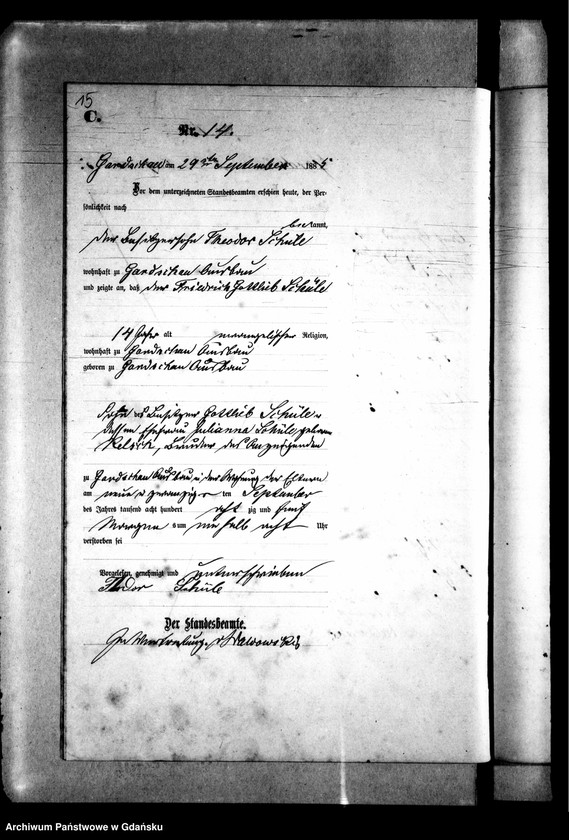 15
C.
Nr. 14.
Gardschau am 29 ten September 1885
Vor dem unterzeichneten Standesbeamten erschien heute, der Per-
sönlichkeit nach
bekannt,
der Besitzersohn Theodor Schüle
wohnhaft zu Gardschau Ausbau
und zeigte an, daß der Friedrich Gottlieb Schüle
14 Jahr alt evangelischer Religion,
wohnhaft zu Gardschau Ausbau
geboren zu Gardschau Ausbau
Sohn des Besitzer Gottlieb Schüle u
dessen Ehefrau Julianna Schüle, geboren
Bruder des Anzeigenden
zu Gardschau Ausbau in der Wohnung der Eltern
am neun u zwanzig ten September
des Jahres tausend acht hundert acht zig und fünf
Morgens um ein halb acht Uhr
verstorben sei
Vorgelesen, genehmigt und unterschrieben
Theodor Schüle
Der Standesbeamte.
In Vertretung.
Archiwum Państwowe w Gdańsku